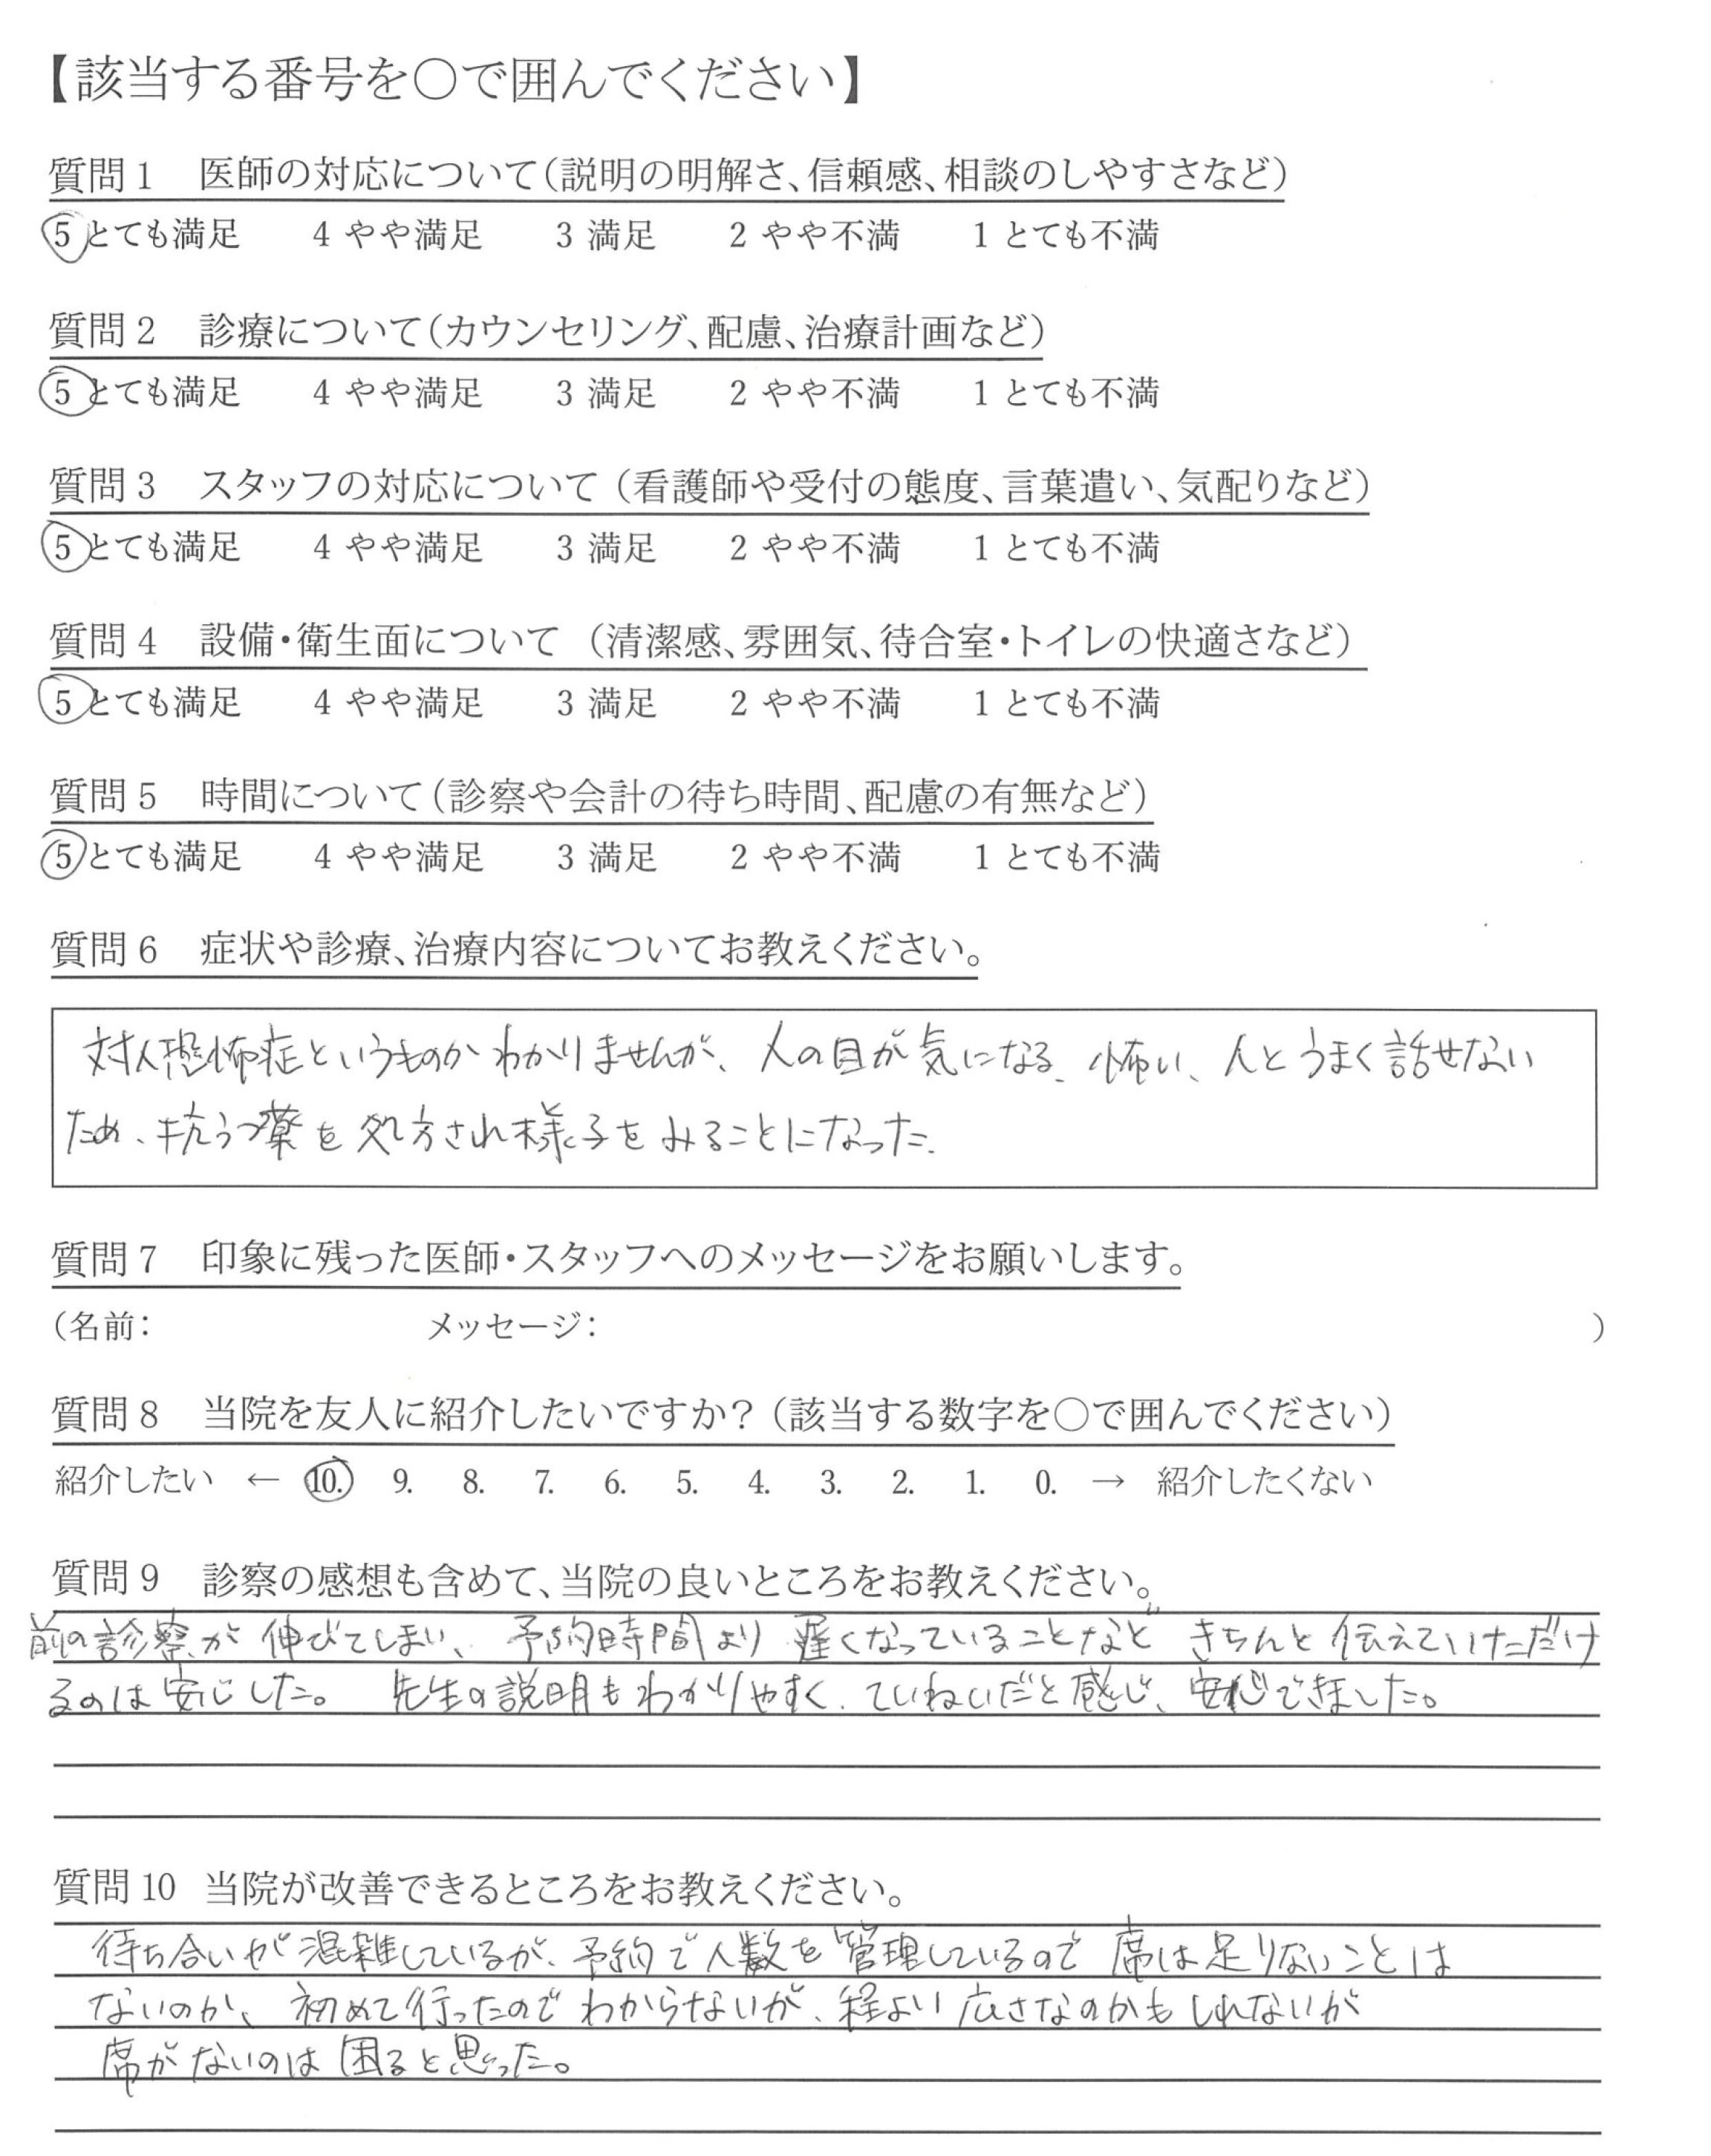 【該当する番号を○で囲んでください】
質問1 医師の対応について(説明の明解さ、信頼感、相談のしやすさなど)
5 とても満足 4 やや満足 3 満足 2 やや不満 1 とても不満
質問2 診療について(カウンセリング、配慮、治療計画など)
5 とても満足 4 やや満足 3 満足 2 やや不満 1 とても不満
質問3 スタッフの対応について(看護師や受付の態度、言葉遣い、気配りなど)
5 とても満足 4 やや満足 3 満足 2 やや不満 1 とても不満
質問4 設備・衛生面について (清潔感、雰囲気、待合室・トイレの快適さなど)
5 とても満足 4 やや満足 3 満足 2 やや不満 1 とても不満
質問5 時間について(診察や会計の待ち時間、配慮の有無など)
5 とても満足 4 やや満足 3 満足 2 やや不満 1 とても不満
質問6 症状や診療、治療内容についてお教えください。
対人恐怖症というものかわかりませんが、人の目が気になる、怖い、人とうまく話せない
ため、抗うつ薬を処方され様子をみることになった。
質問7 印象に残った医師・スタッフへのメッセージをお願いします。
(名前: メッセージ: )
質問8 当院を友人に紹介したいですか?(該当する数字を○で囲んでください)
紹介したい ← 10. 9. 8. 7. 6. 5. 4. 3. 2. 1. 0. → 紹介したくない
質問9 診察の感想も含めて、当院の良いところをお教えください。
前の診察が伸びてしまい、予約時間より遅くなっていることなどきちんと伝えていただけ
るのは安心した。 先生の説明もわかりやすく、ていねいだと感じ、安心できました。
質問10 当院が改善できるところをお教えください。
待ち合いが混雑しているが、予約で人数を管理しているので席は足りないことは
ないのか、初めて行ったのでわからないが、程よい広さなのかもしれないが
席がないのは困ると思った。